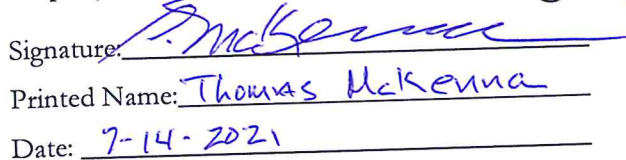 Signature: T. McKenna
Printed Name: Thomas McKenna
Date: 7-14-2021